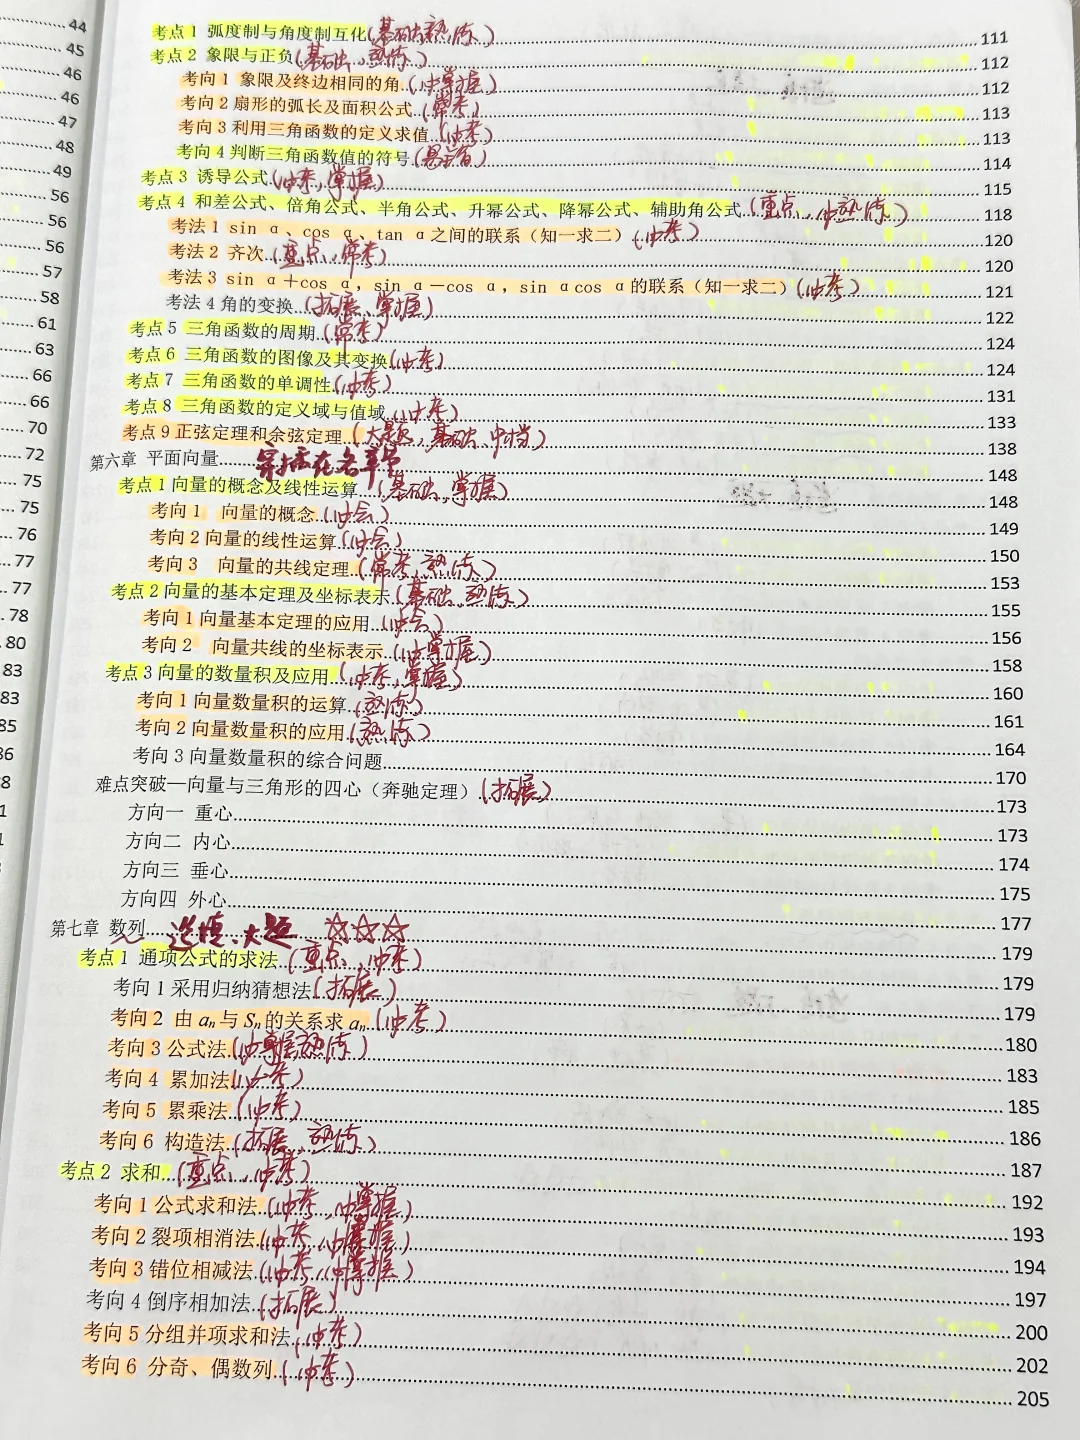 44
45
46
46
47
48
49
56
56
56
57
58
61
63
66
66
70
72
75
75
76
77
77
78
80
83
83
考点1 弧度制与角度制互化(基础、熟练) 111
考点2 象限与正负(基础、熟练) 112
考向1 象限及终边相同的角(必掌握) 112
考向2扇形的弧长及面积公式(常考) 113
考向3利用三角函数的定义求值(必考) 113
考向4判断三角函数值的符号 114
考点3 诱导公式(必考、掌握) 115
考点4 和差公式、倍角公式、半角公式、升幂公式、降幂公式、辅助角公式(重点、必熟练) 118
考法1 sin α、cos α、tan α之间的联系(知一求二)(必考) 120
考法2 齐次(重点、常考) 120
考法3 sin α+cos α,sin α-cos α,sin αcos α的联系(知一求二)(必考) 121
考法4角的变换(拓展、掌握) 122
考点5 三角函数的周期(常考) 124
考点6 三角函数的图像及其变换(必考) 124
考点7 三角函数的单调性(必考) 131
考点8 三角函数的定义域与值域(必考) 133
考点9正弦定理和余弦定理(大题、基础、中档) 138
第六章 平面向量 穿插在各章节 148
考点1向量的概念及线性运算(基础、掌握) 148
考向1 向量的概念(必会) 149
考向2向量的线性运算(必会) 150
考向3 向量的共线定理(常考、熟练) 153
考点2向量的基本定理及坐标表示(基础、熟练) 155
考向1向量基本定理的应用(必会) 156
考向2 向量共线的坐标表示(必掌握) 158
考点3向量的数量积及应用(必考、掌握) 160
考向1向量数量积的运算(熟练) 161
考向2向量数量积的应用(熟练) 164
考向3向量数量积的综合问题 170
难点突破—向量与三角形的四心(奔驰定理)(拓展) 173
方向一 重心 173
方向二 内心 174
方向三 垂心 175
方向四 外心 177
第七章 数列 选填、大题 ☆☆☆ 179
考点1 通项公式的求法(重点、必考) 179
考向1采用归纳猜想法(拓展) 179
考向2 由aₙ与Sₙ的关系求aₙ(必考) 180
考向3公式法(必掌握熟练) 183
考向4 累加法(必考) 185
考向5 累乘法(必考) 186
考向6 构造法(拓展、熟练) 187
考点2 求和(重点、必考) 192
考向1公式求和法(必考、必掌握) 193
考向2裂项相消法(必考、必掌握) 194
考向3错位相减法(必考、必掌握) 197
考向4倒序相加法(拓展) 200
考向5分组并项求和法(必考) 202
考向6 分奇、偶数列(必考) 205